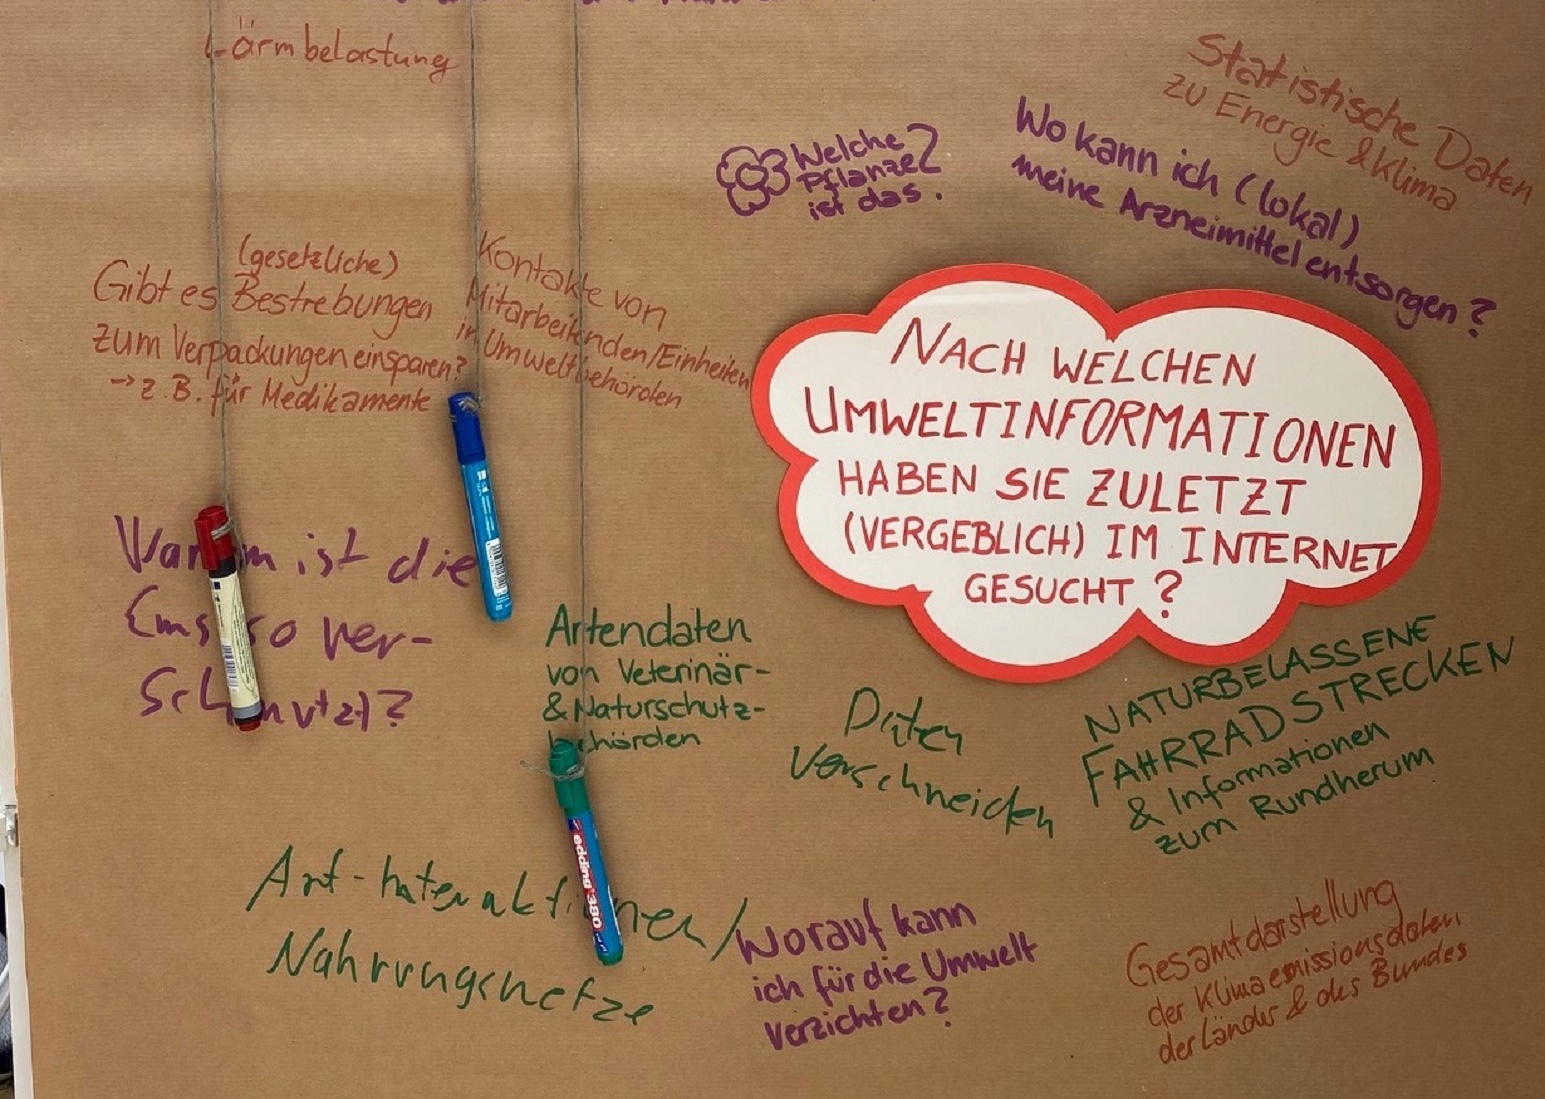 Lärmbelastung
Statistische Daten
zu Energie & Klima
Wo kann ich (lokal)
meine Arzneimittel entsorgen?
Welche
Pflanze
ist das?
(gesetzliche)
Gibt es Bestrebungen
zum Verpackungen einsparen?
→ z.B. für Medikamente
Kontakte von
Mitarbeitenden/Einheiten
in Umweltbehörden
NACH WELCHEN
UMWELTINFORMATIONEN
HABEN SIE ZULETZT
(VERGEBLICH) IM INTERNET
GESUCHT?
Warum ist die
Ems so ver-
schmutzt?
Artendaten
von Veterinär-
& Naturschutz-
behörden
edding 380
Daten
verschneiden
NATURBELASSENE
FAHRRADSTRECKEN
& Informationen
zum Rundherum
Art-Interaktionen/
Nahrungsnetze
Worauf kann
ich für die Umwelt
verzichten?
Gesamtdarstellung
der Klimaemissionsdaten
der Länder & des Bundes